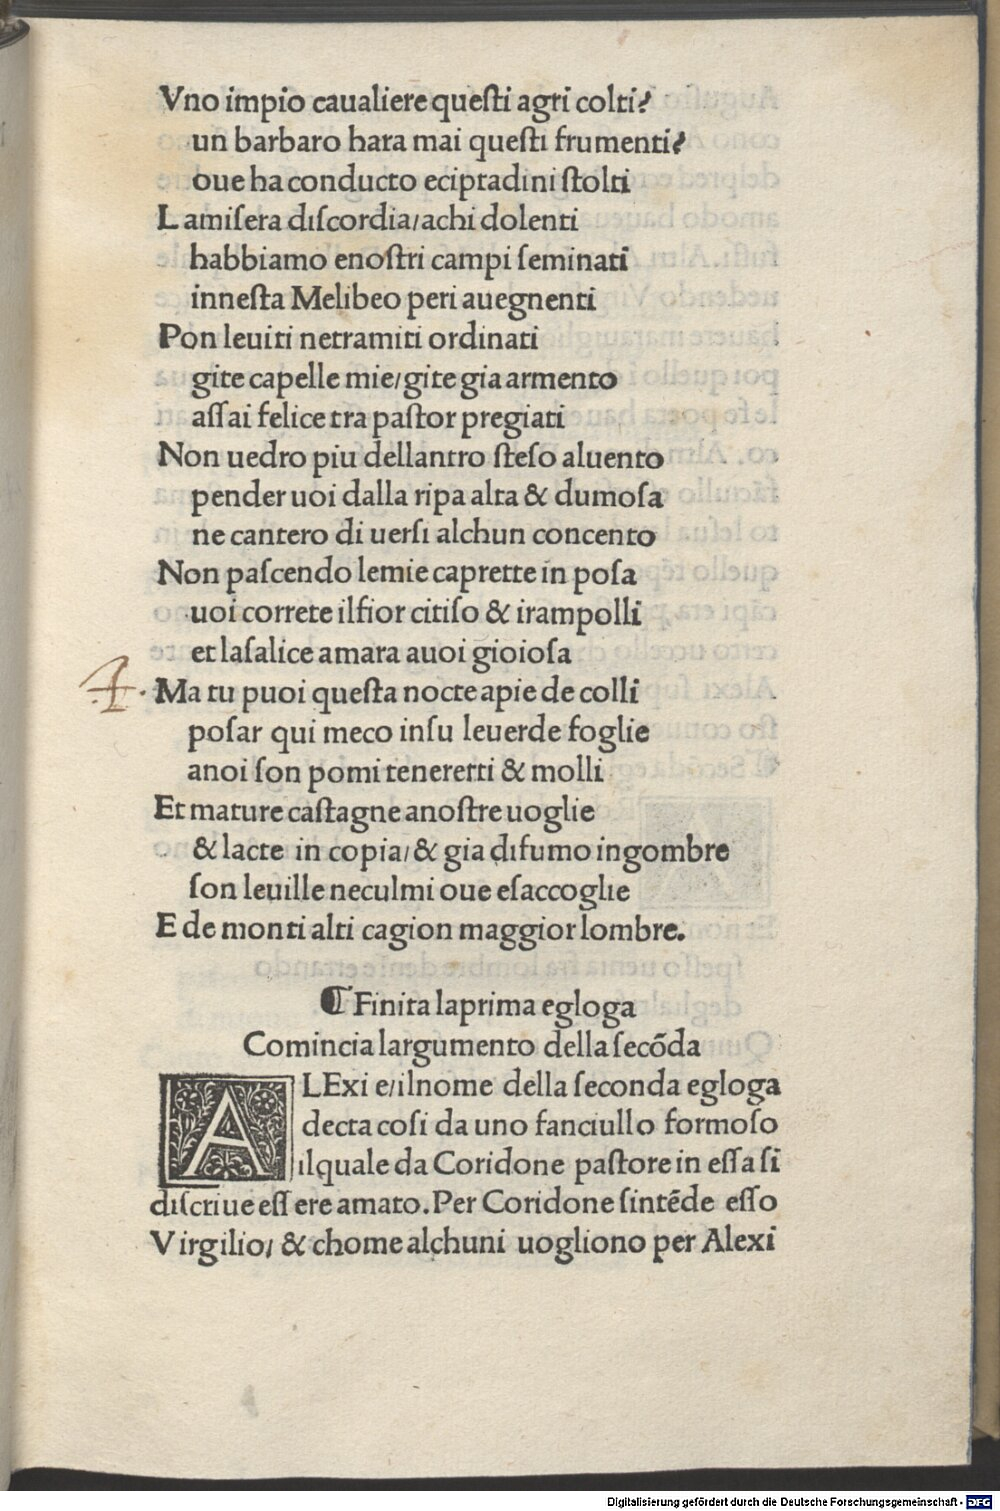 Vno impio caualiere queſti agri colti?
un barbaro hara mai queſti frumenti?
oue ha conducto eciptadini ſtolti
La miſera diſcordia/achi dolenti
habbiamo enoſtri campi ſeminati
inneſta Melibeo peri auegnenti
Pon leuiti netramiti ordinati
gite capelle mie/gite gia armento
aſſai felice tra paſtor pregiati
Non uedro piu dellantro ſteſo aluento
pender uoi dalla ripa alta & dumoſa
ne cantero di uerſi alchun concento
Non paſcendo lemie caprette in poſa
uoi correte ilfior citiſo & irampolli
et laſalice amara auoi gioioſa
4. Ma tu puoi queſta nocte apie de colli
poſar qui meco inſu leuerde foglie
anoi ſon pomi teneretti & molli
Et mature caſtagne anoſtre uoglie
& lacte in copia/& gia difumo ingombre
ſon leuille neculmi oue eſaccoglie
E de monti alti cagion maggior lombre.
¶ Finita laprima egloga
Comincia largumento della ſecōda
ALExi e/ilnome della ſeconda egloga
decta coſi da uno fanciullo formoſo
ilquale da Coridone paſtore in eſſa ſi
diſcriue eſſere amato. Per Coridone ſintēde eſſo
Virgilio/ & chome alchuni uogliono per Alexi
Digitalisierung gefördert durch die Deutsche Forschungsgemeinschaft - DFG